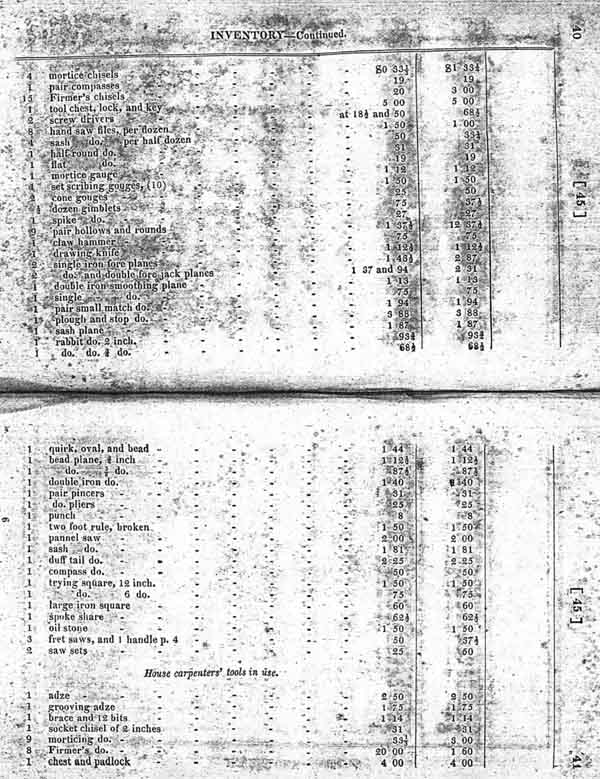 40
INVENTORY—Continued.
4 mortice chisels - $0 33½ $1 33½
1 pair compasses - 19 19
15 Firmer's chisels - 20 3 00
1 tool chest, lock, and key - 5 00 5 00
2 screw drivers - at 18½ and 50 68½
8 hand saw files, per dozen - 1 50 1 00
4 sash do. per half dozen - 50 33½
1 half-round do. - 31 31
1 flat do. - 19 19
1 mortice gauge - 1 12 1 12
1 set scribing gouges, (10) - 1 50 1 50
2 cone gouges - 25 50
½ dozen gimblets - 75 37½
1 spike do. - 27 27
9 pair hollows and rounds - 1 37½ 12 37½
1 claw hammer - 75 75
1 drawing knife - 1 12½ 1 12½
2 single iron fore planes - 1 43½ 2 87
2 do. and double fore jack planes - 1 37 and 94 2 31
1 double iron smoothing plane - 1 13 1 13
1 single do. - 75 75
1 pair small match do. - 1 94 1 94
1 plough and stop do. - 3 88 3 88
1 sash plane - 1 87 1 87
1 rabbit do. 2 inch. - 93¾ 93¾
1 do. do. ¾ do. - 68¾ 68¾
[ 45 ]
1 quirk, oval, and bead - 1 44 1 44
1 bead plane, inch - 1 12½ 1 12½
1 do. do. - 87½ 87½
1 double iron do. - 1 40 1 40
1 pair pincers - 31 31
1 do. pliers - 25 25
1 punch - 8 8
1 two foot rule, broken - 1 50 1 50
1 pannel saw - 2 00 2 00
1 sash do. - 1 81 1 81
1 duff tail do. - 2 25 2 25
1 compass do. - 50 50
1 trying square, 12 inch. - 1 50 1 50
1 do. 6 do. - 75 75
1 large iron square - 60 60
1 spoke share - 62½ 62½
1 oil stone - 1 50 1 50
3 fret saws, and 1 handle p. 4 - 50 37½
2 saw sets - 25 50
House carpenters' tools in use.
1 adze - 2 50 2 50
1 grooving adze - 1 75 1 75
1 brace and 12 bits - 1 14 1 14
1 socket chisel of 2 inches - 31 31
9 morticing do. - 33½ 3 00
8 Firmer's do. - 20 00 1 60
1 chest and padlock - 4 00 4 00
6
[ 45 ]
41